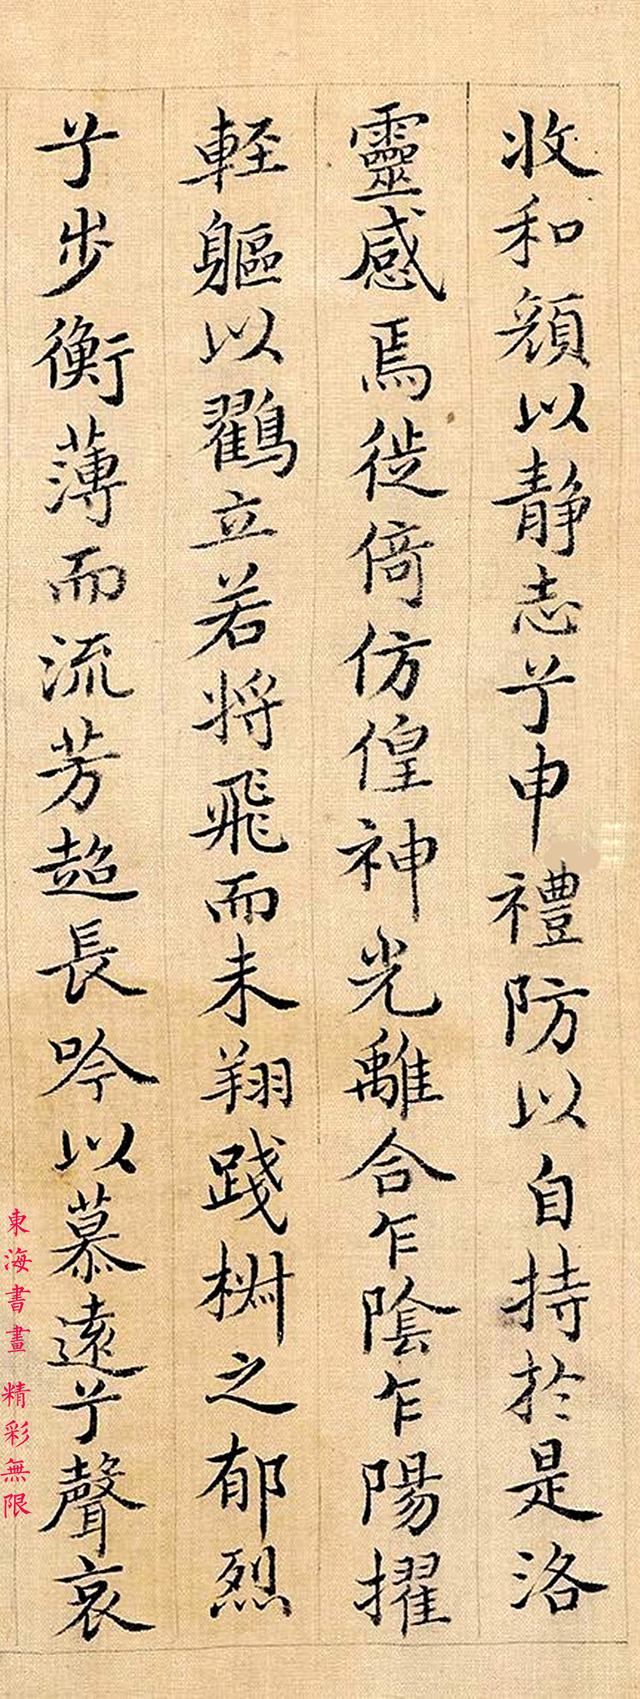 收和顔以静志兮申禮防以自持於是洛
靈感焉徙倚仿偟神光離合乍陰乍陽擢
軽軀以鸛立若将飛而未翔踐椒之郁烈
兮步衡薄而流芳超長吟以慕遠兮聲哀
東海書畫 精彩無限